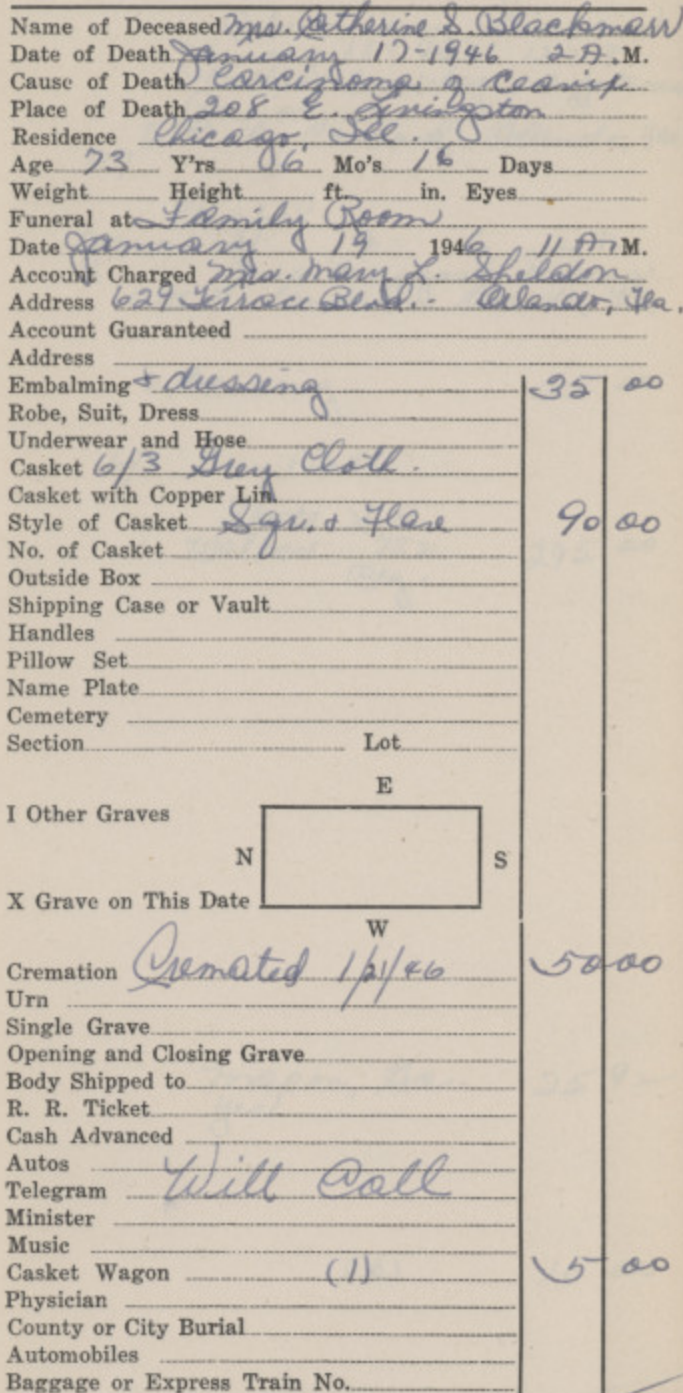 Name of Deceased Mrs. Catherine S. Blackmarr
Date of Death January 17-1946 2 A.M.
Cause of Death Carcinoma of Cearix
Place of Death 208 E. Livingston
Residence Chicago, Ill.
Age 73 Y'rs 6 Mo's 16 Days
Weight Height ft. in. Eyes
Funeral at Family Room
Date January 19 1946 11 A.M.
Account Charged Mrs. Mary L. Sheldon
Address 629 Terrace Blvd. - Orlando, Fla.
Account Guaranteed
Address
Embalming & dressing 35 00
Robe, Suit, Dress
Underwear and Hose
Casket 6/3 Grey Cloth.
Casket with Copper Lin.
Style of Casket Sqr. & Flare 90 00
No. of Casket
Outside Box
Shipping Case or Vault
Handles
Pillow Set
Name Plate
Cemetery
Section Lot
E
I Other Graves
N S
X Grave on This Date
W
Cremation Cremated 1/21/46 50 00
Urn
Single Grave
Opening and Closing Grave
Body Shipped to
R. R. Ticket
Cash Advanced
Autos
Telegram Will Call
Minister
Music
Casket Wagon (1) 5 00
Physician
County or City Burial
Automobiles
Baggage or Express Train No.